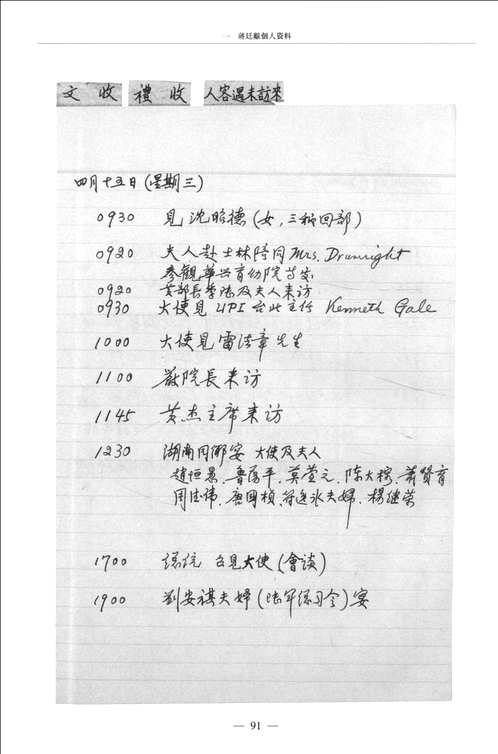 一 蔣廷黻個人資料
文 收 禮 收 人客遇未訪來
四月十五日(星期三)
0930 見沈晤德(女,三秘回部)
0920 夫人赴士林陪同 Mrs. Drumright
參觀華興育幼院等處
0920 黃部長季陸及夫人來訪
0930 大使見UPI台北主任 Kenneth Gale
1000 大使見雷法章先生
1100 嚴院長來訪
1145 黃杰主席來訪
1230 湖南同鄉宴 大使及夫人
趙恒惖、魯蕩平、莫萱元、陳大榕、蕭贊育
周佳偉、唐國楨、夫婦、楊繼榮
1700 總統召見大使(會談)
1900 劉安祺夫婦(陸軍總司令)宴
— 91 —